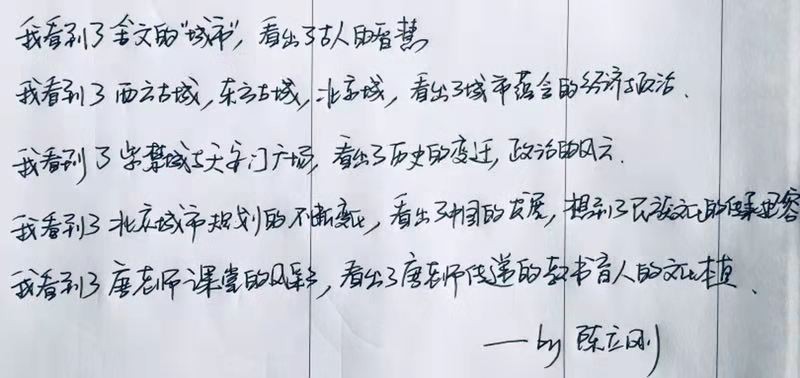 我看到了金文的“城市”，看出了古人的智慧
我看到了西方古城，东方古城，北京城，看出了城市蕴含的经济与政治．
我看到了紫禁城与天安门广场，看出了历史的变迁，政治的风云．
我看到了北京城市规划的不断变化，看出了中国的发展，想到了民族文化的传承
我看到了唐老师课堂的风彩，看出了唐老师传递的教书育人的文化本植．
——by 陈立刚